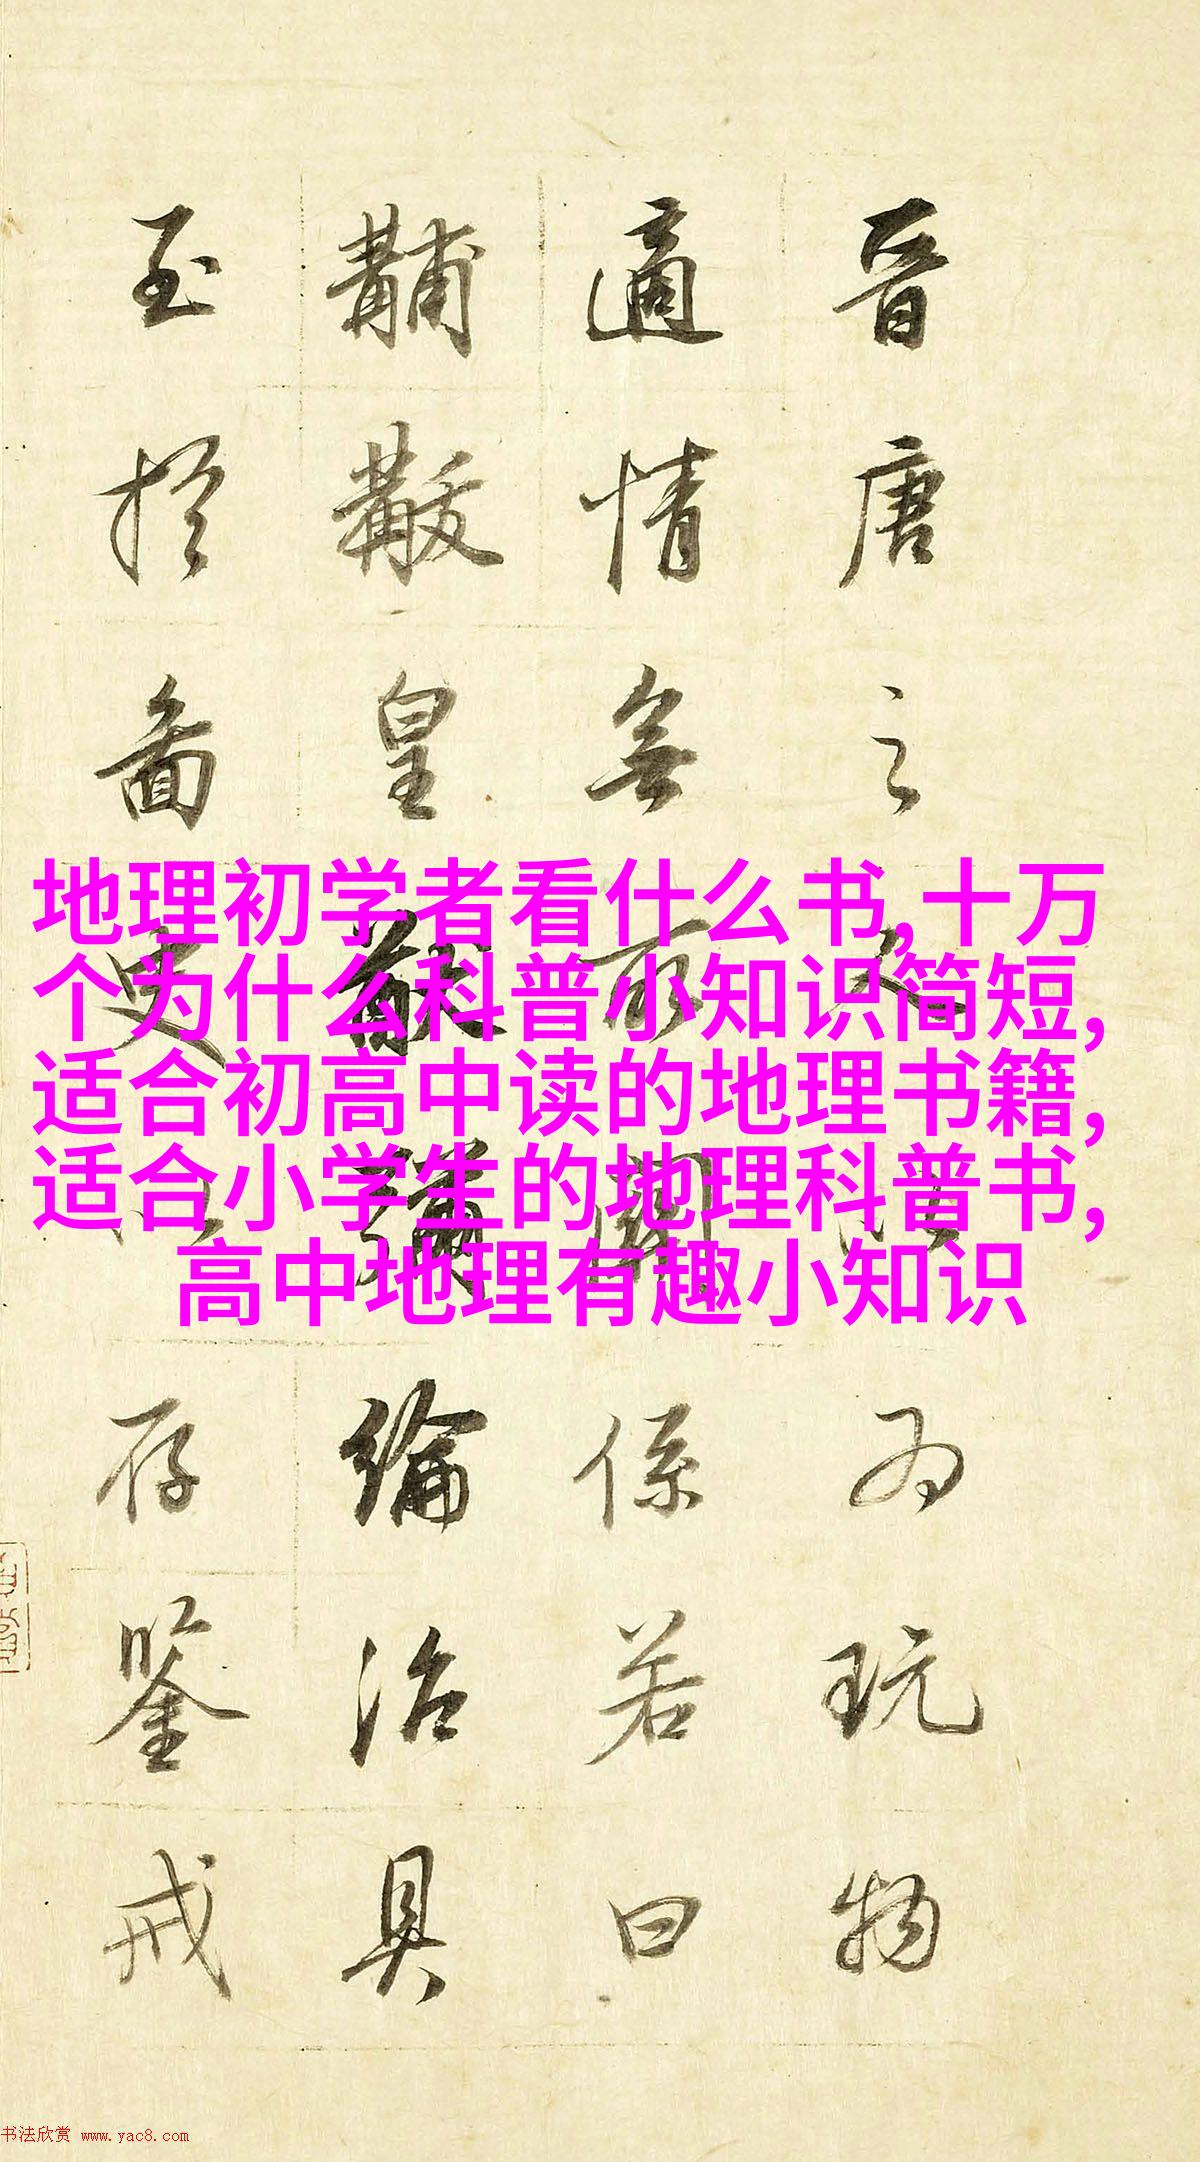 晉唐之玩物
適情無所關係若曰
黼黻皇猷彌綸治具
至於圖史以存鑒戒
地理初学者看什么书,十万
个为什么科普小知识简短,
适合初高中读的地理书籍,
适合小学生的地理科普书,
高中地理有趣小知识
书法欣赏 www.yac8.com